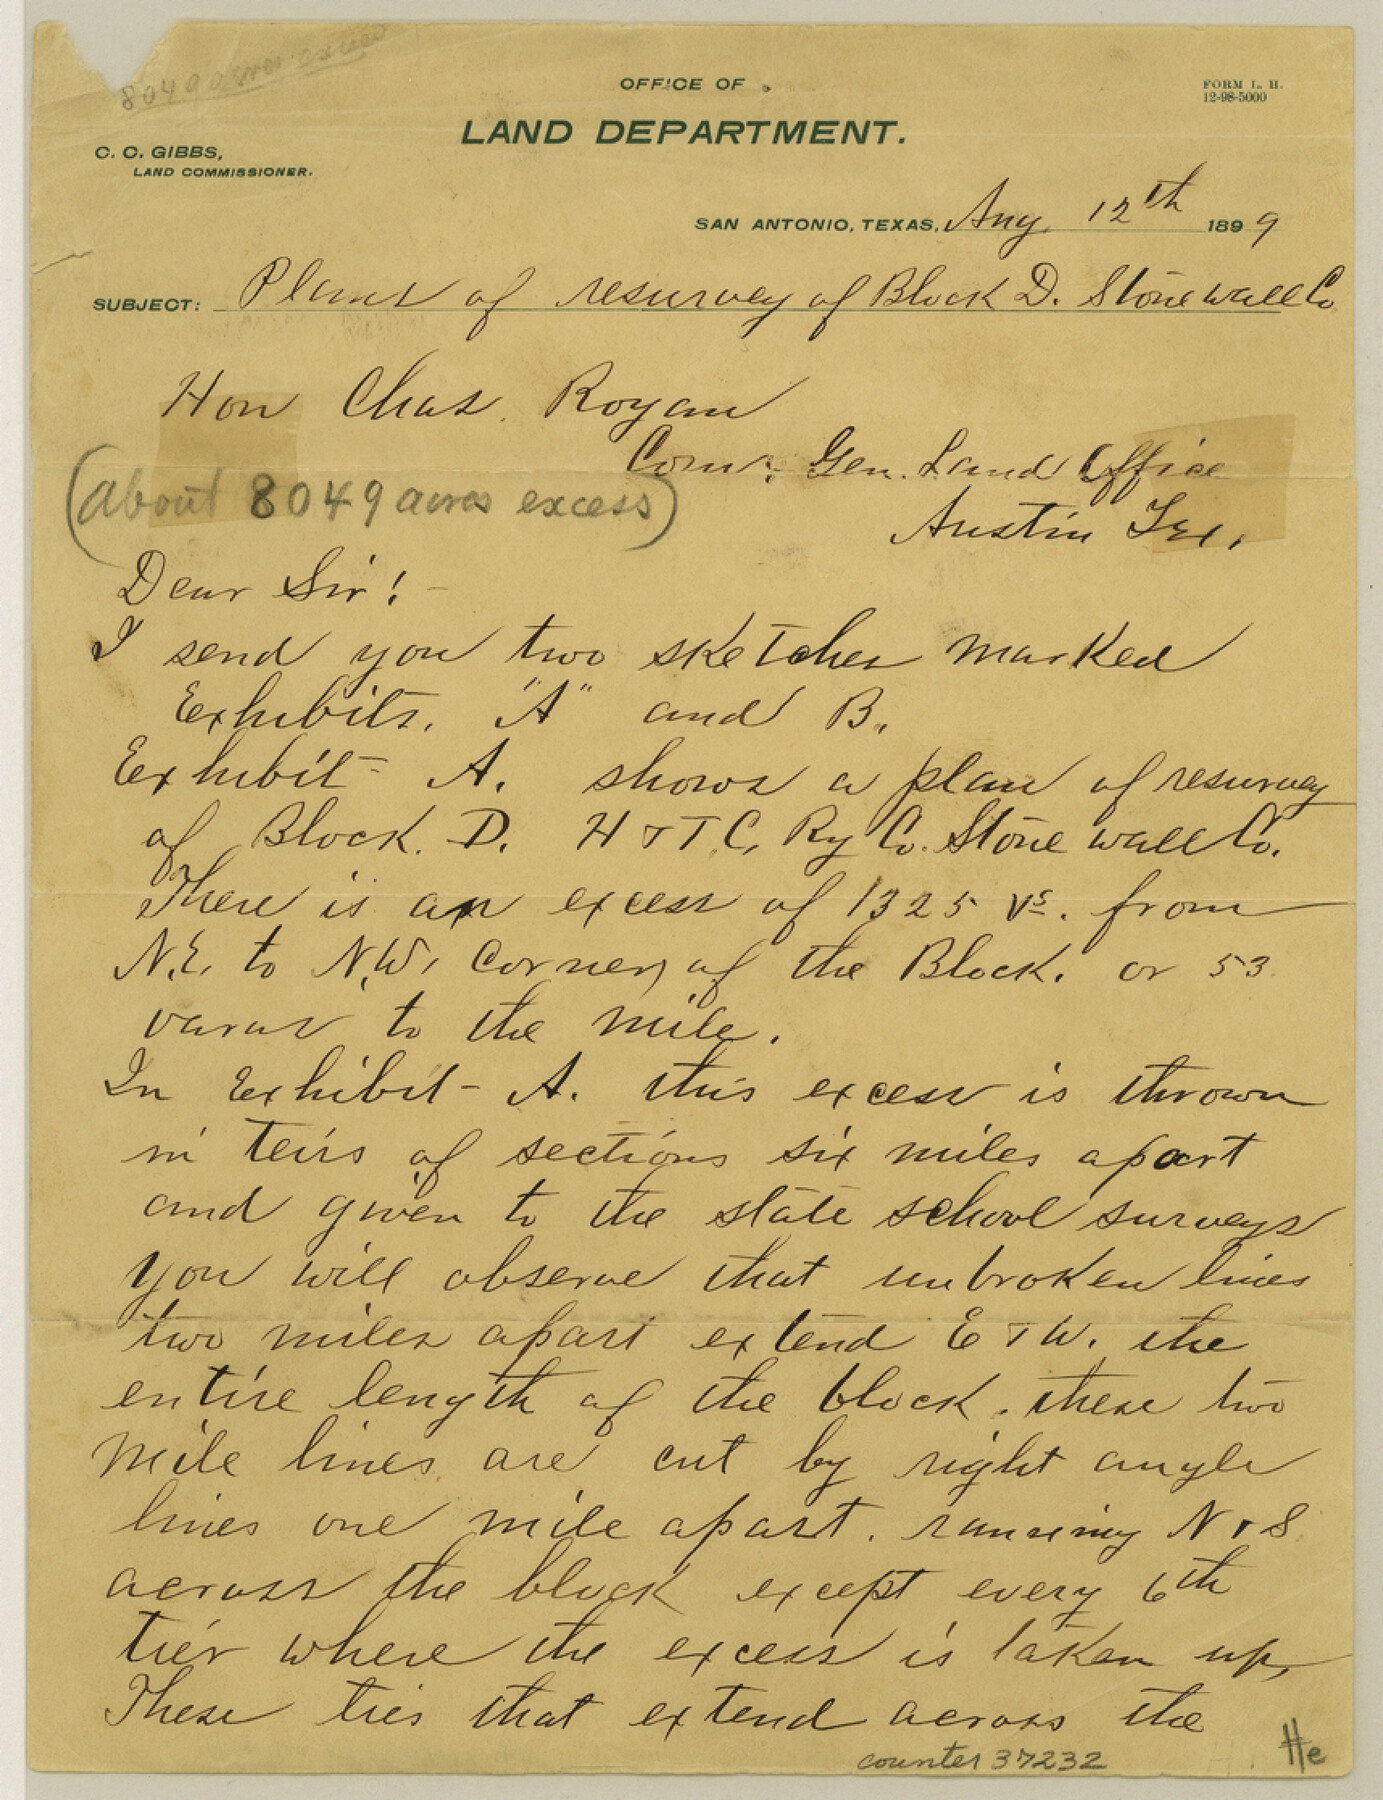 8049 acres excess
OFFICE OF
FORM L. H.
12-98-5000
LAND DEPARTMENT.
C. C. GIBBS,
LAND COMMISSIONER.
SAN ANTONIO, TEXAS, Aug. 12th 1899
SUBJECT: Plans of resurvey of Block D. Stonewall Co
Hon Chas. Rogan
Com. Gen. Land Office
(about 8049 acres excess)
Austin Tex.
Dear Sir! -
I send you two sketches marked
Exhibits. "A" and B.
Exhibit - A. shows a plan of resurvey
of Block. D. H & T. C, Ry Co. Stonewall Co.
There is an excess of 1325 vs. from
N.E. to N.W. Corner, of the Block. or 53
varas to the mile.
In Exhibit - A. this excess is thrown
in teirs of sections six miles apart
and given to the state school surveys
You will observe that unbroken lines
two miles apart extend E & W. the
entire length of the block. these two
mile lines are cut by right angle
lines one mile apart. running N & S
across the block except every 6th
tier where the excess is taken up,
These ties that extend across the
counter 37232
He